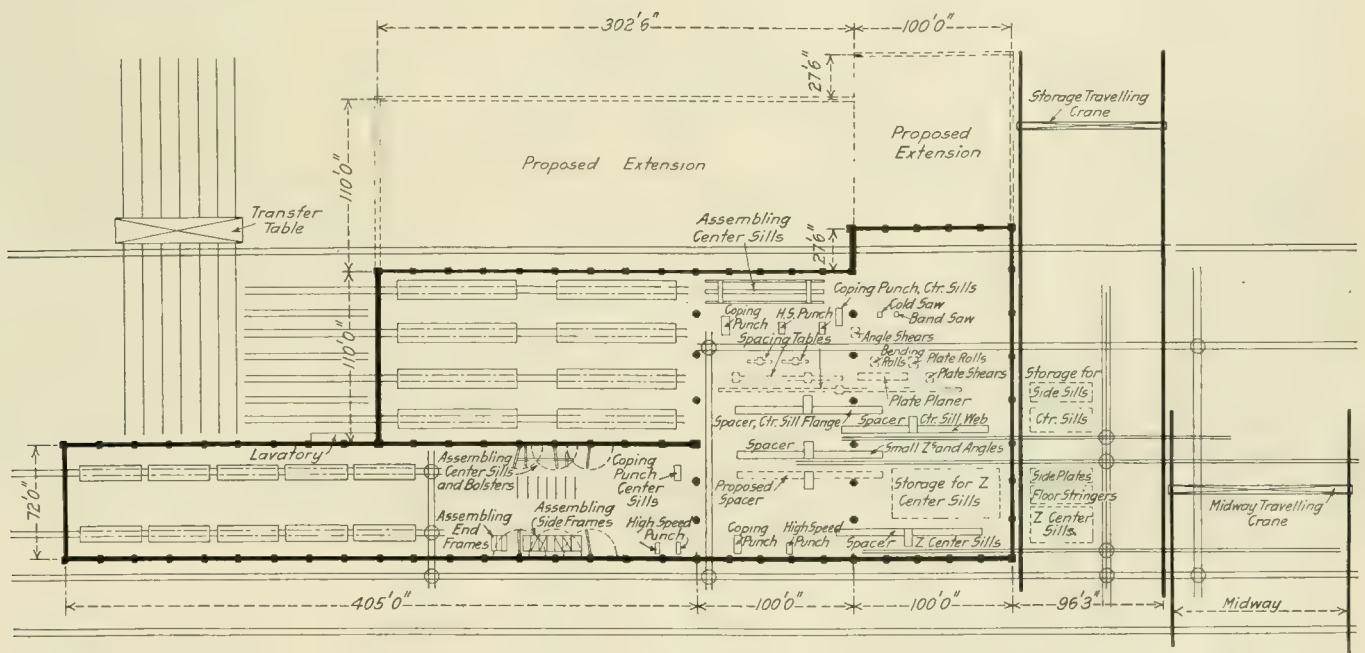 302'6"
100'0"
27'6"
Storage Travelling
Crane
Proposed
Extension
Proposed Extension
110'0"
Transfer
Table
Assembling
Center Sills
27'6"
Coping Punch, Ctr. Sills
Cold Saw
Band Saw
Coping
Punch
H.S. Punch
Angle Shears
Spacing Tables
Bending
Rolls
Plate Rolls
Plate Shears
110'0"
Plate Planer
Storage for
Side Sills
Ctr. Sills
Spacer, Ctr. Sill Flange
Spacer
Ctr. Sill, Web
Lavatory
Spacer
Small Zs and Angles
Assembling
Center Sills
and Bolsters
Coping
Punch
Center
Sills
Proposed
Spacer
Storage for Z
Center Sills
Side Plates
Floor Stringers
Z Center
Sills.
Midway Travelling
Crane
72'0"
Assembling
End
Frames
Assembling
Side Frames
High Speed
Punch
Coping
Punch
High Speed
Punch
Spacer
Z Center Sills
405'0"
100'0"
100'0"
96'3"
Midway